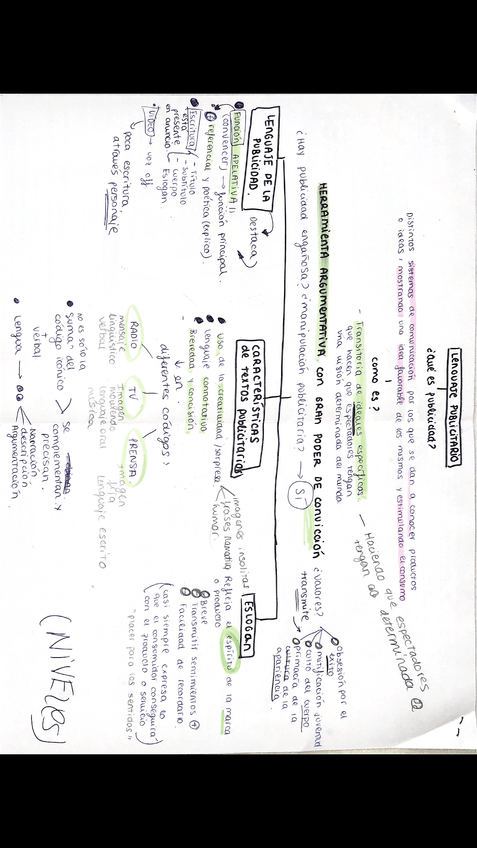 LENGUAJE PUBLICITARIO
¿Qué es PUBLICIDAD?
Distintos sistemas de comunicación por los que se dan a conocer productos
o ideas, mostrando una idea favorable de los mismos y estimulando el consumo
como es?
- Transitoria de ideales específicos
que hacen que espectadores tengan
una visión determinada del mundo
— Haciendo que espectadores
tengan
determinada
HERRAMIENTA ARGUMENTATIVA, con GRAN PODER DE CONVICCIÓN
¿Valores?
transmite
Obsesión por el
éxito
mitificación juventud
culto del cuerpo
primacía de la
cultura de la
apariencia
¿Hay publicidad engañosa? ¿manipulación publicitaria? → Sí
LENGUAJE DE LA
PUBLICIDAD.
Destaca
Función APELATIVA
(convencer) → función principal.
+ referencial y poética (explico)
Escritura
está
presente
en anuncio
- Título
- Subtítulo
- Cuerpo
- Eslogan
VIDEO → voz off
poca escritura
através personaje
CARACTERÍSTICAS
de textos publicitarios
Uso de la creatividad/sorpresa
imagenes insolitas
frases
humor.
Lenguaje connotativo
Brevedad y concisión.
en
diferentes códigos:
RADIO
mensaje
lingüístico
verbal
TV
Imagen
movimiento
lenguaje oral
música
PRENSA
imagen
fija
lenguaje escrito
no es sólo la
"suma" del
código icónico
+ verbal
se
complementan y
precisan
Lengua →
Narración,
descripción,
Argumentación.
ESLOGAN
Refleja el espíritu de la marca
o producto
Breve
Transmitir sentimientos +
Facilidad de recordarlo
(casi siempre expresa lo
que el consumidor conseguirá
con el producto o servicio)
"placer para los sentidos"
(NIVELES)